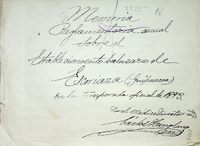 Memoria
Reglamentaria anual
sobre el
Establecimiento balneario de
Escoriaza (Guipuzcoa)
en la temporada oficial de 1899
por el médico director